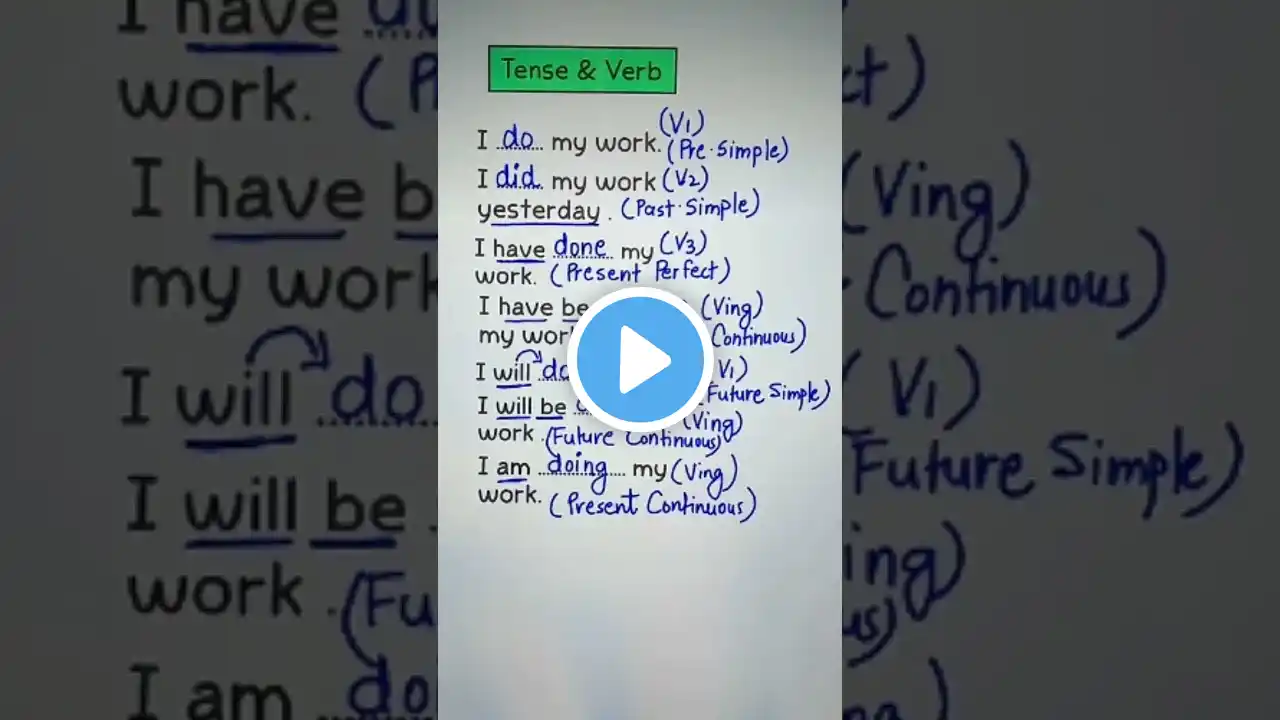 Tense & Verb
I do my work. (V1)
(Pre. Simple)
I did my work (V2)
yesterday. (Past. Simple)
I have done my (V3)
work. (Present Perfect)
I have (Ving)
my Continuous)
I will V1)
Future Simple)
I will be (Ving)
work. (Future Continuous)
I am doing my (Ving)
work. (Present Continuous)